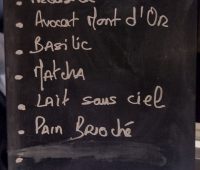 Avocat Mont d'Or
Basilic
Matcha
Lait sous ciel
Pain Brioché